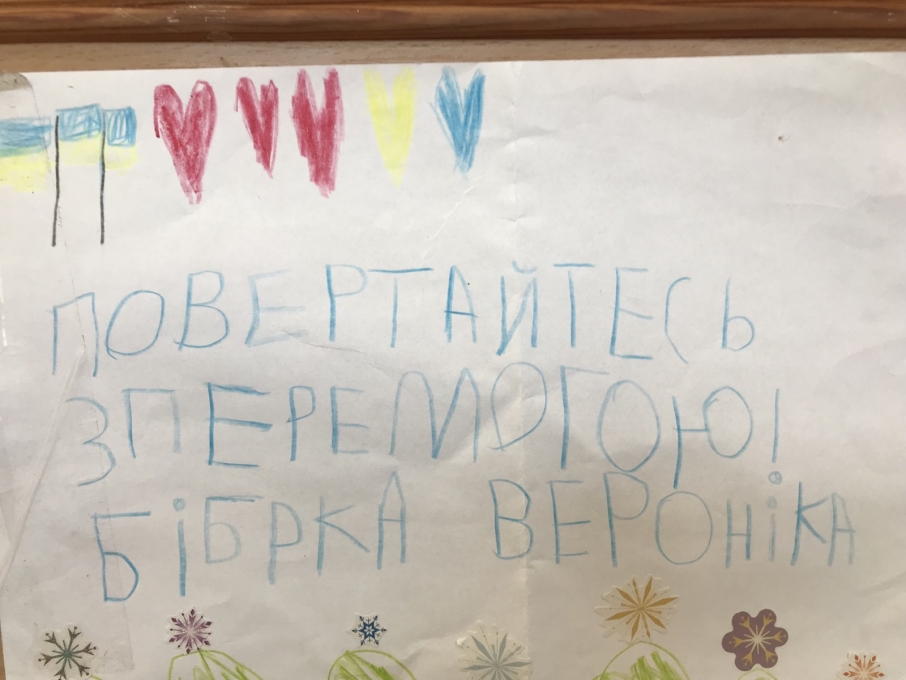 ПОВЕРТАЙТЕСЬ
ЗПЕРЕМОГОЮ!
БІБРКА ВЕРОНІКА